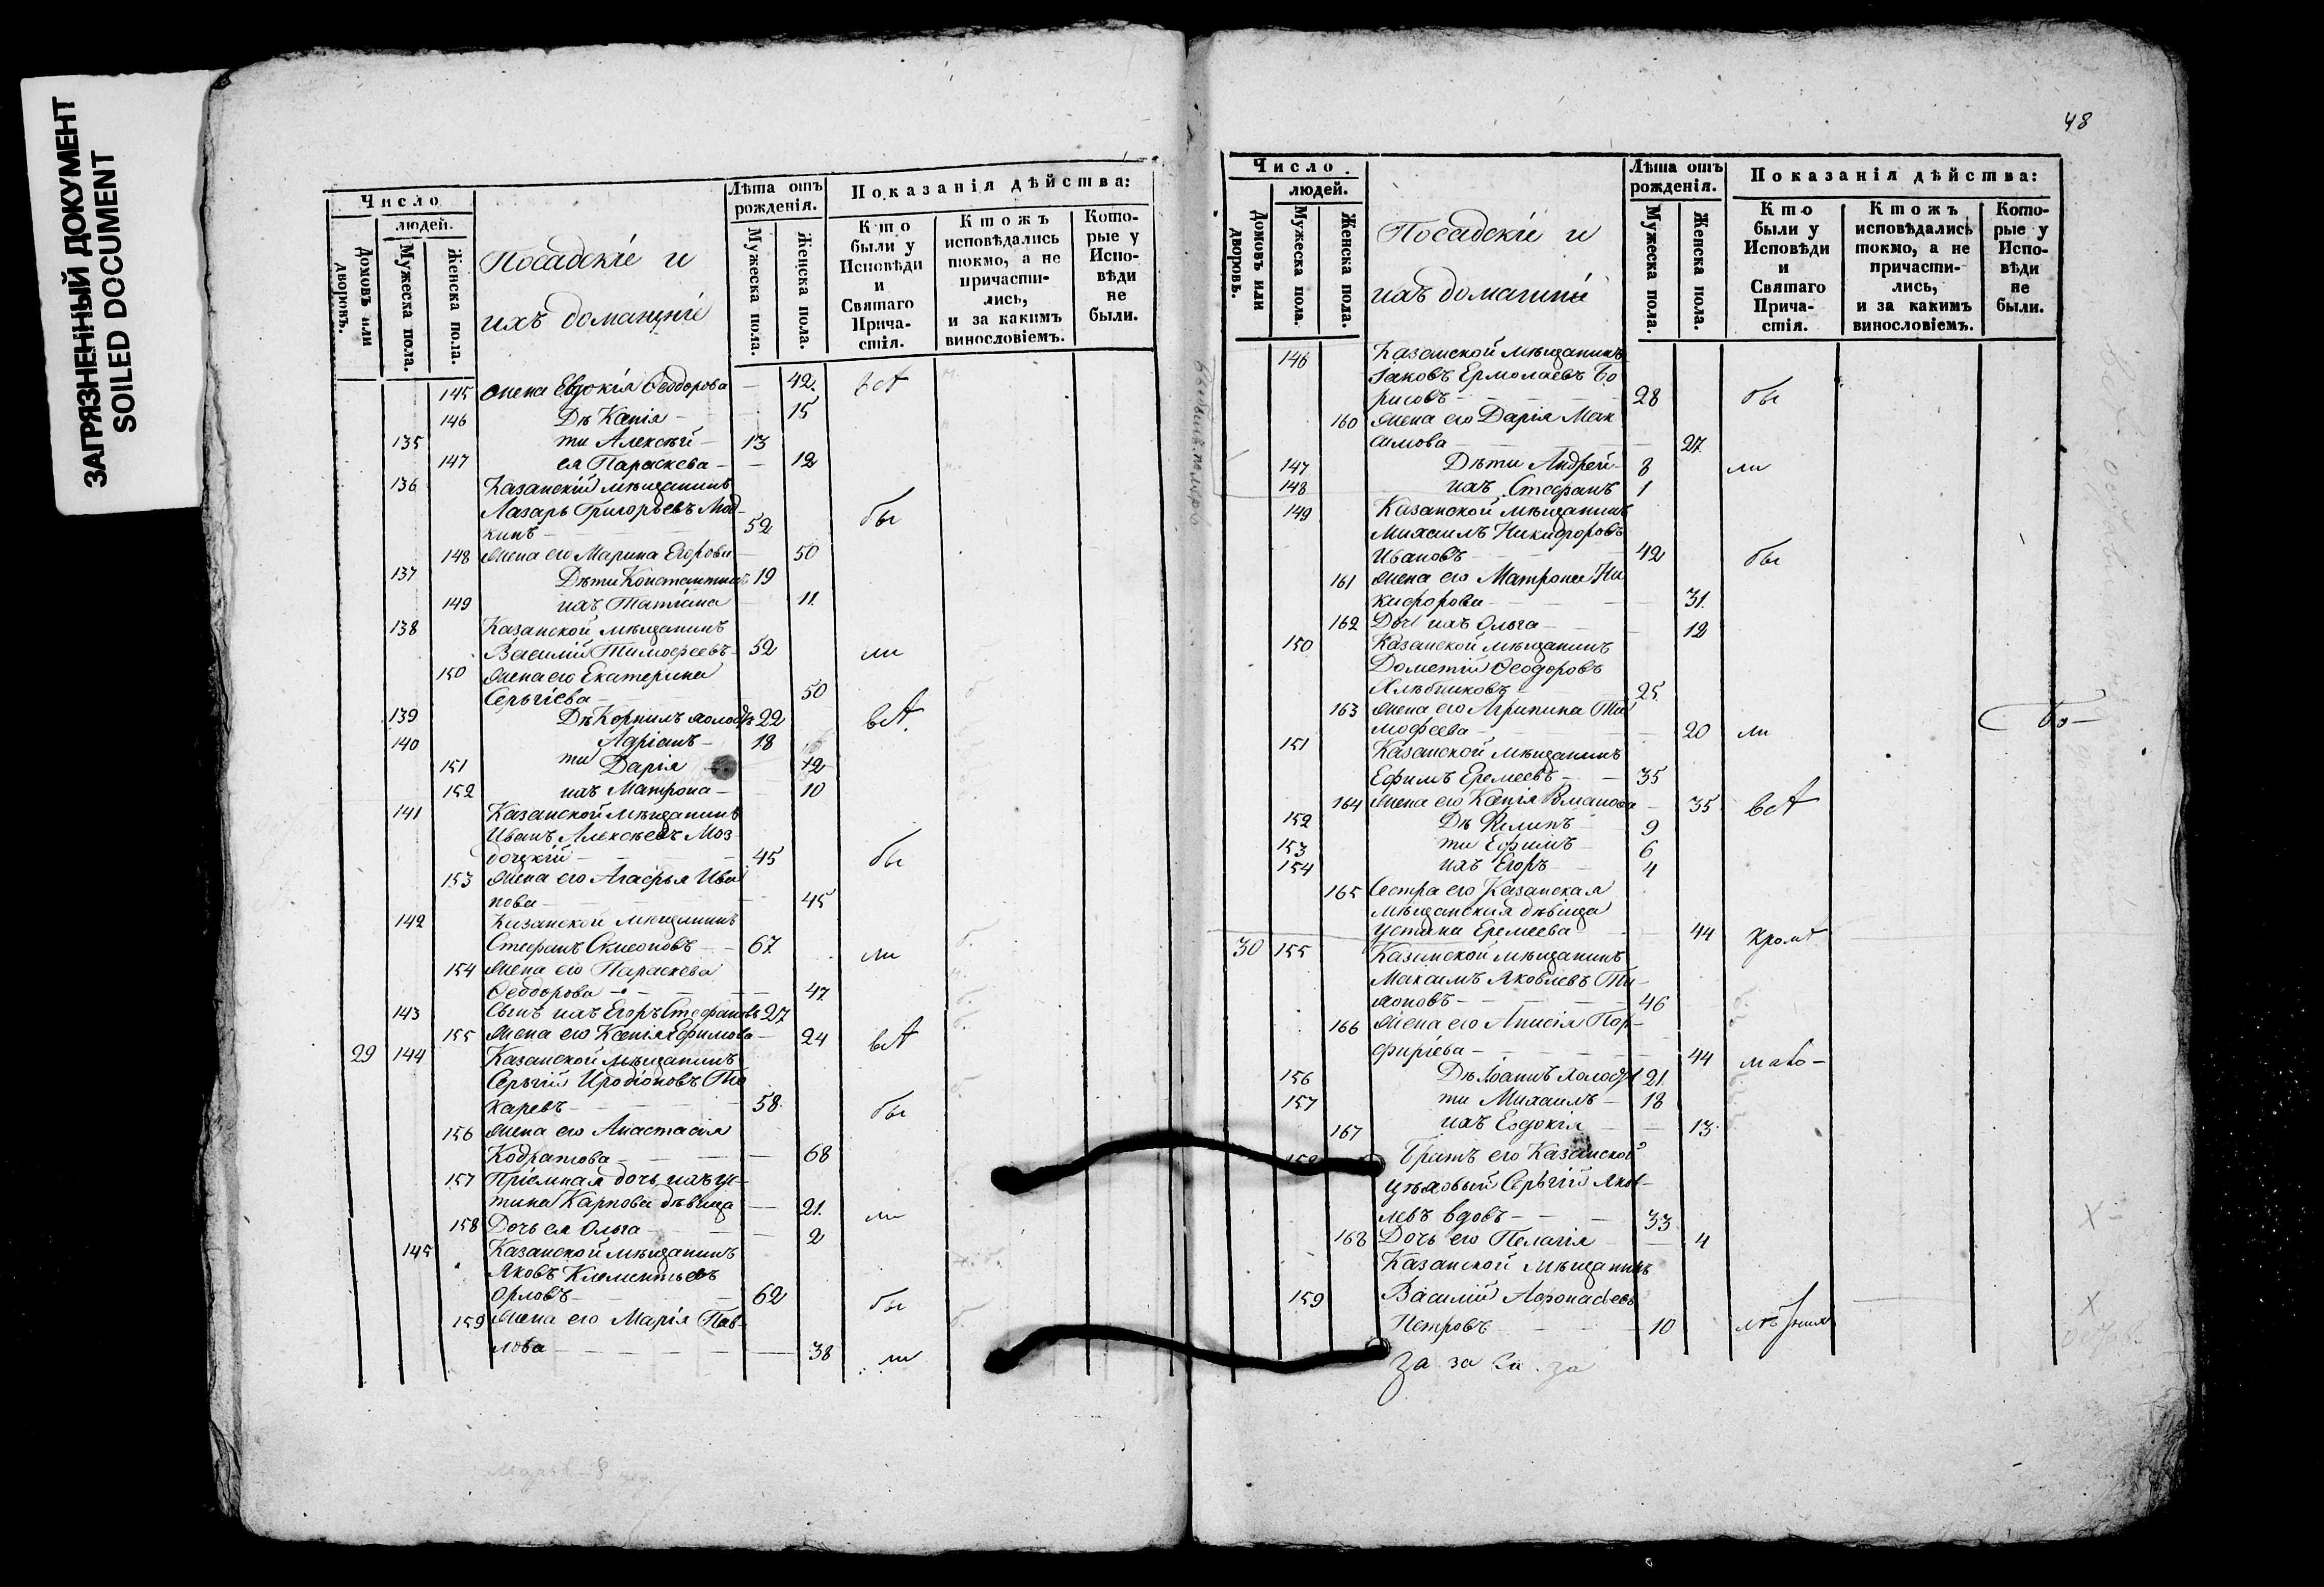 ЗАГРЯЗНЕННЫЙ ДОКУМЕНТ
SOILED DOCUMENT
Число
людей.
Домовъ или дворовъ.
Мужеска пола.
Женска пола.
Посадскіе и
ихъ домашніе
Лѣта отъ рожденія.
Мужеска пола.
Женска пола.
Показанія дѣйства:
Кто были у Исповѣди и Святаго Прича-стія.
Ктожъ исповѣдались токмо, а не причасти-лись, и за какимъ винословіемъ.
Кото-рые у Испо-вѣди не были.
145 жена Евдокія Ѳеодорова — 42. всѣ
146 Дѣ Ксенія — 15
135 ти Алексѣй — 13
147 ея Параскева — 12
136 Казанскій мѣщанинъ
Лазарь Григорьевъ
кинъ — 52 бы
148 Жена его Марина Егорова — 50
137 Дѣти Константинъ 19
149 ихъ Татіана — 11.
138 Казанской мѣщанинъ
Василій Тимоѳеевъ — 52 ли
150 Жена его Екатерина
Сергіева — 50
139 Дѣ Корнилъ холостъ 22 всѣ
140 Адріанъ — 18
151 ти Дарія 12
152 ихъ Матрона — 10
141 Казанской мѣщанинъ
Иванъ Алексѣевъ Моз
доцкій — 45 бы
153 Жена его Агафья Ива
нова — 45
142 Казанской мѣщанинъ
Стефанъ Симеоновъ — 67. ли
154 Жена его Параскева
Ѳеодорова — 47
143 Сынъ ихъ Егоръ Стефановъ 27
155 Жена его Ксенія Ефимова — 24 всѣ
29 144 Казанской мѣщанинъ
Сергій Иродіоновъ То
каревъ — 58. бы
156 Жена его Анастасія
Кодратова — 68
157 Пріемная дочь ихъ Ус-
тина Карпова дѣвица — 21. ли
158 Дочь ея Ольга — 2
145 Казанской мѣщанинъ
Яковъ Клементьевъ
Орловъ — 62 бы
159 Жена его Марія Пав-
лова — 38 ли
48
Число.
людей.
Домовъ или дворовъ.
Мужеска пола.
Женска пола.
Посадскіе и
ихъ домашніе
Лѣта отъ рожденія.
Мужеска пола.
Женска пола.
Показанія дѣйства:
Кто были у Исповѣди и Святаго Прича-стія.
Ктожъ исповѣдались токмо, а не причасти-лись, и за какимъ винословіемъ.
Кото-рые у Испо-вѣди не были.
146 Казанской мѣщанинъ
Іаковъ Ермолаевъ Бо
рисовъ — 28 бы
160 Жена его Дарія Мак
симова — 27
147 Дѣти Андрей — 8 ли
148 ихъ Стефанъ 1
149 Казанской мѣщанинъ
Михаилъ Никифоровъ
Ивановъ — 42 бы
161 Жена его Матрона Ни
кифорова — 31.
162 Дочь ихъ Ольга — 12
150 Казанской мѣщанинъ
Дометій Ѳеодоровъ
Хлѣбниковъ — 25
163 Жена его Агрипина Ти
моѳеева — 20 ли
151 Казанской мѣщанинъ
Ефимъ Еремеевъ — 35
164 Жена его Ксенія Романова — 35 всѣ
152 Дѣ Филипъ 9
153 ти Ефимъ — 6
154 ихъ Егоръ — 4
165 Сестра его Казанская
мѣщанская дѣвица
Устина Еремеева 44 кромѣ
30 155 Казанской мѣщанинъ
Максимъ Яковлевъ Ти-
хоновъ — 46
166 Жена его Анисія Пор-
фиріева — 44 мало-
156 Дѣ Іоаннъ холостъ 21.
157 ти Михаилъ — 18
167 ихъ Евдокія — 13.
158 Братъ его Казанской
цѣховый Сергій Яков-
левъ вдовъ — 33
168 Дочь его Пелагія — 4
Казанской мѣщанинъ
159 Василій Аѳонасьевъ
Петровъ — 10 лѣтнихъ
За за за за